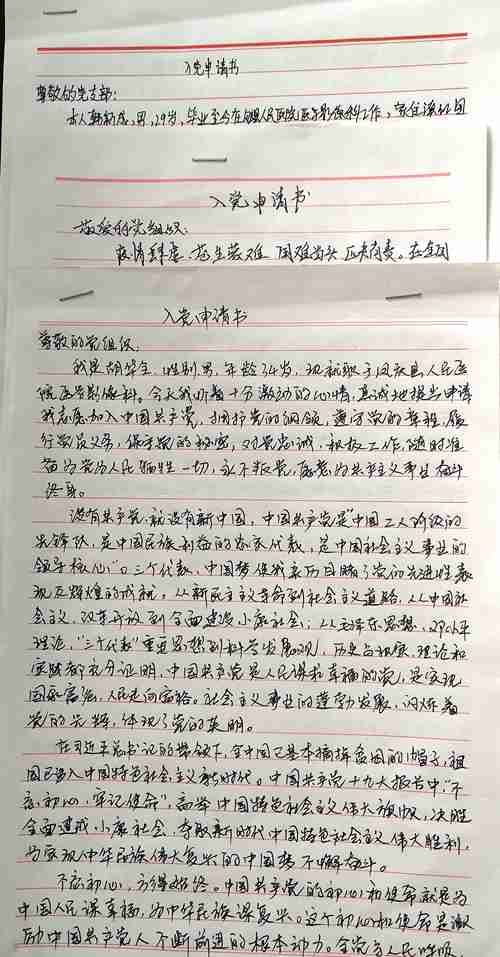 入党申请书
尊敬的党支部：
本人韩新成，男，29岁，毕业至今在县人民医院医学影像科工作，家住
入党申请书
敬爱的党组织：
疫情肆虐，苍生蒙难，国难当头，匹夫有责。在全国
入党申请书
尊敬的党组织：
我是胡华全，性别男，年龄34岁，现就职于凤县人民医
院医学影像科。今天我怀着十分激动的心情，真诚地提出申请
我志愿加入中国共产党，拥护党的纲领，遵守党的章程，履
行党员义务，保守党的秘密，对党忠诚，积极工作，随时准
备为党为人民牺牲一切，永不叛党，愿意为共产主义事业奋斗
终身。
没有共产党就没有新中国，中国共产党是“中国工人阶级的
先锋队，是中国民族利益的忠实代表，是中国社会主义事业的
领导核心”。三个代表，中国梦使我亲历目睹了党的先进性表
现及辉煌的成就。从新民主主义革命到社会主义道路，从中国社
会主义，改革开放到全面建设小康社会；从毛泽东思想，邓小平
理论，“三个代表”重要思想到科学发展观，历史与现实，理论和
实践都充分证明，中国共产党是人民谋求幸福的党，是实现
国家富强，人民走向富裕。社会主义事业的蓬勃发展，闪烁着
党的光辉，体现了党的英明。
在习近平总书记的带领下，全中国已基本摘掉贫困的帽子，祖
国已步入中国特色社会主义新时代。中国共产党十九大报告中，“不
忘初心，牢记使命”，高举中国特色社会主义伟大旗帜，决胜
全面建成小康社会，夺取新时代中国特色社会主义伟大胜利，
为实现中华民族伟大复兴的中国梦不懈奋斗。
不忘初心，方得始终。中国共产党的初心和使命就是为
中国人民谋幸福，为中华民族谋复兴。这个初心和使命是激
励中国共产党人不断前进的根本动力。全党与人民呼吸，